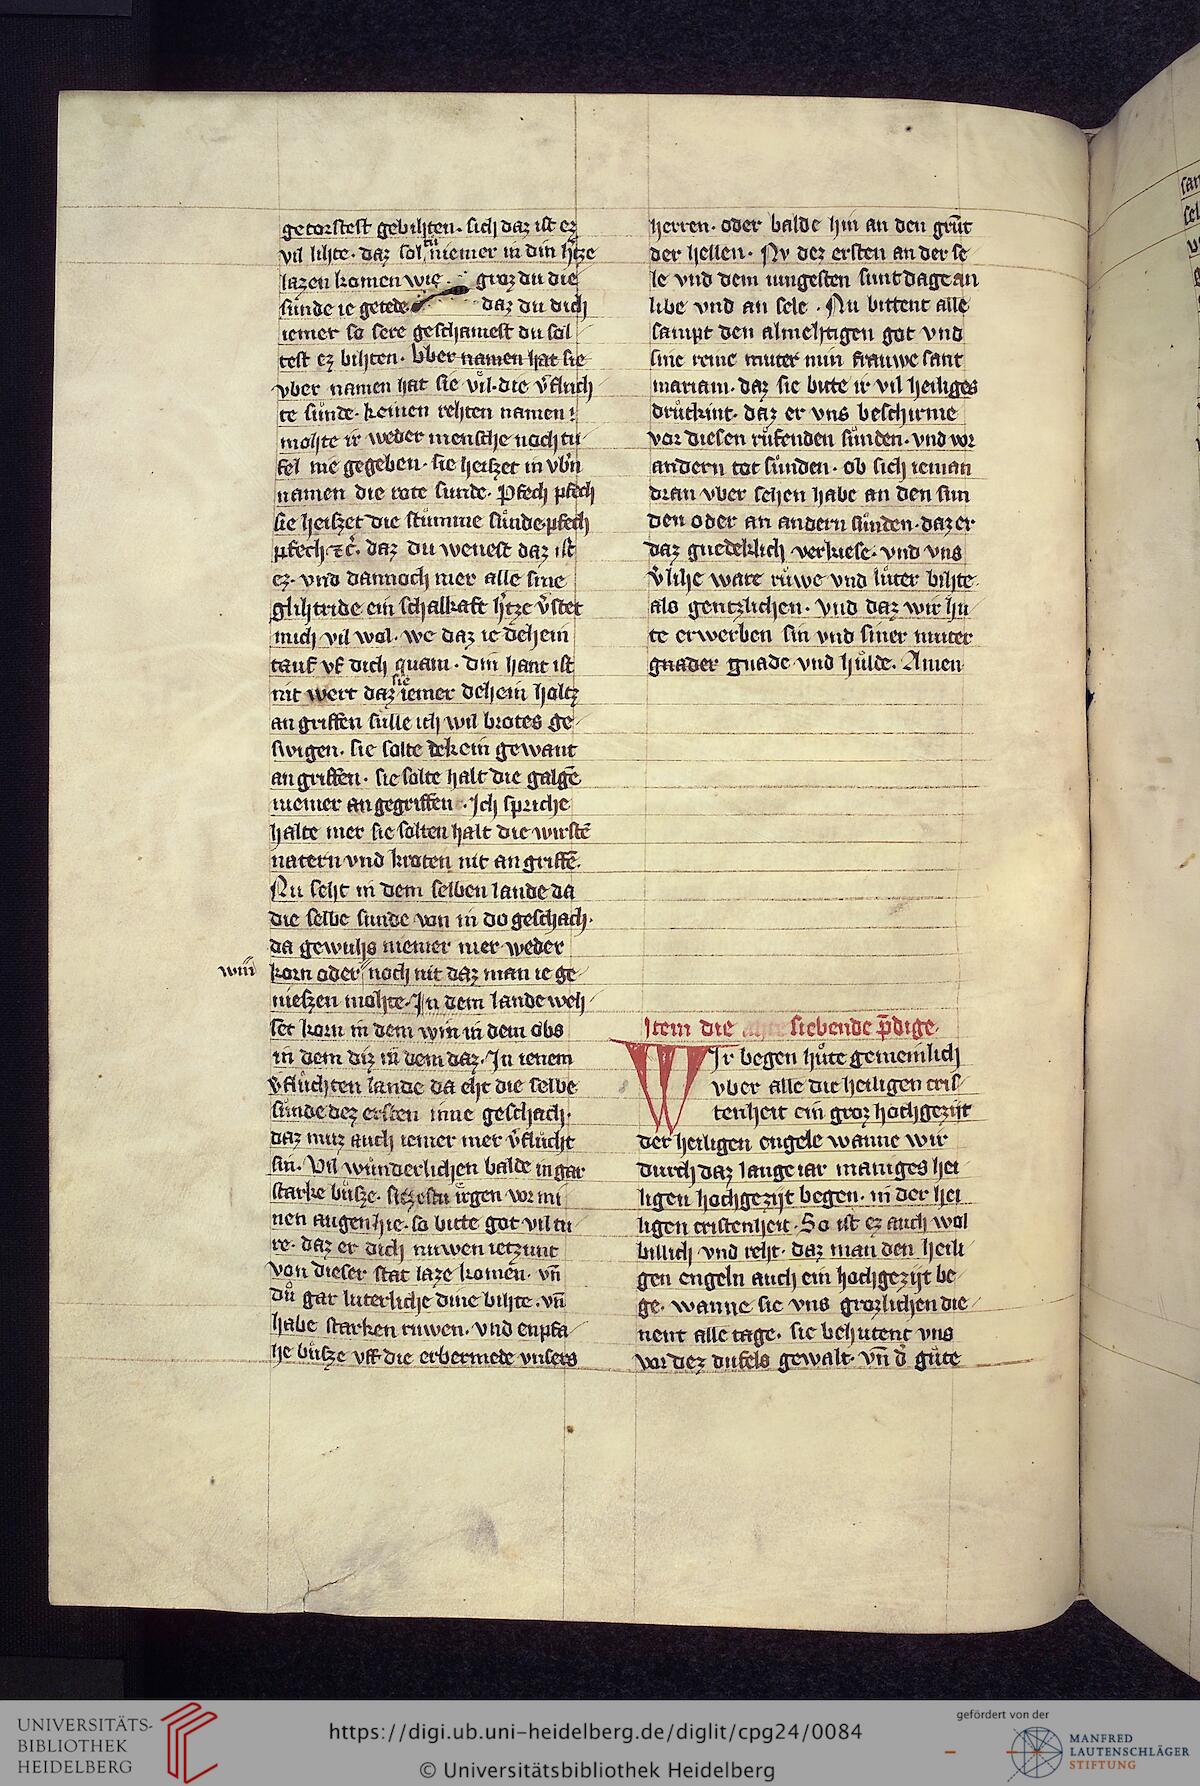 getorstest gebihten. sich daz ist ez
vil lihte. daz sol tu niemer in din h'tze
lazen komen wie groz du die
sunde ie getede. daz du dich
iemer so sere geschamest du sol
test ez bihten. Vber namen hat sie
vber namen hat sie vil. die v'fluch
te sůnde. keinen rehten namen
mohte ir weder mensche noch tu
fel nie gegeben. sie heiszet in vb'n
namen die rote sunde. Pfech pfech
sie heiszet die stůmme sůnde. pfech
pfech ꝛc̃. daz du wenest daz ist
ez. vnd dannoch mer alle sine
glihtride ein schalkaft h'tze v'stet
mich vil wol. we daz ie dehein
tauf vf dich quam. din hant ist
nit wert daz sie iemer dehein holtz
an griffen sulle ich wil brotes ge
swigen. sie solte dekein gewant
an griffen. sie solte halt die galgē
niemer an gegriffen. Ich spriche
halte mer sie solten halt die wirstē
natern vnd kroten nit an griffē.
Nu seht in dem selben lande da
die selbe sunde von in do geschach.
da gewuhs niemer mer weder
win korn oder noch nit daz man ie ge
nieszen mohte. In dem lande weh
set korn in dem win in dem obs
in dem diz in dem daz. In ienem
v'flůchten lande da eht die selbe
sůnde dez ersten inne geschach.
daz muz auch iemer mer v'flůcht
sin. Vil wůnderlichen balde in gar
starke bůsze. sitzestu irgen vor mi
nen augen hie. so bitte got vil tu
re. daz er dich nuwen ietzunt
von dieser stat laze komen. vn̄
dů gar luterliche dine bihte. vn̄
habe starken ruwen. vnd enpfa
he bůsze vff die erbermede vnsers
herren. oder balde hin an den grūt
der hellen. Nv dez ersten an der se
le vnd dem iungesten sunt dage an
libe vnd an sele. Nu bittent alle
sampt den almehtigen got vnd
sine reine muter min frauwe sant
mariam. daz sie bitte ir vil heiliges
drůtkint. daz er vns beschirme
vor diesen růfenden sůnden. vnd vor
andern tot sůnden. ob sich ieman
dran vber sehen habe an den sun
den oder an andern sůnden. daz er
daz gnedeklich verkiese. vnd vns
v'lihe ware růwe vnd lůter bihte.
also gentzlichen. vnd daz wir hu
te erwerben sin vnd siner muter
gnader gnade vnd hůlde. Amen
Item die siebende p̄dige
WIr begen hůte gemeinlich
vber alle die heiligen cris
tenheit ein groz hochgezijt
der heiligen engele wanne wir
durch daz lange iar maniges hei
ligen hochgezijt begen. in der hei
ligen cristenheit. So ist ez auch wol
billich vnd reht. daz man den heili
gen engeln auch ein hochgezijt be
ge. wanne sie vns grozlichen die
nent alle tage. sie behutent vns
vor dez dufels gewalt. vn̄ d' gůte
UNIVERSITÄTS-
BIBLIOTHEK
HEIDELBERG
https://digi.ub.uni-heidelberg.de/diglit/cpg24/0084
© Universitätsbibliothek Heidelberg
gefördert von der
MANFRED
LAUTENSCHLÄGER
STIFTUNG